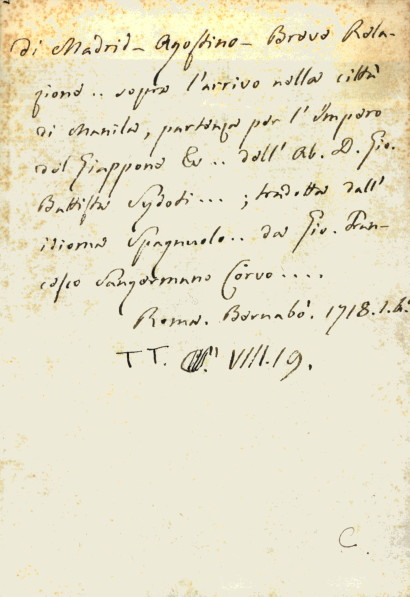 di Madrid - Agostino - Breve Rela-
zione .. sopra l'arrivo nella città
di Manila, partenza per l'Impero
del Giappone &c .. dell' Ab. D. Gio.
Battista Sydoti ... ; tradotta dall'
idioma Spagnuolo .. da Gio. Fran-
cesco Sangermano Corvo ....
Roma. Bernabò. 1718. 1. 4:
TT. VIII. 19.
C.